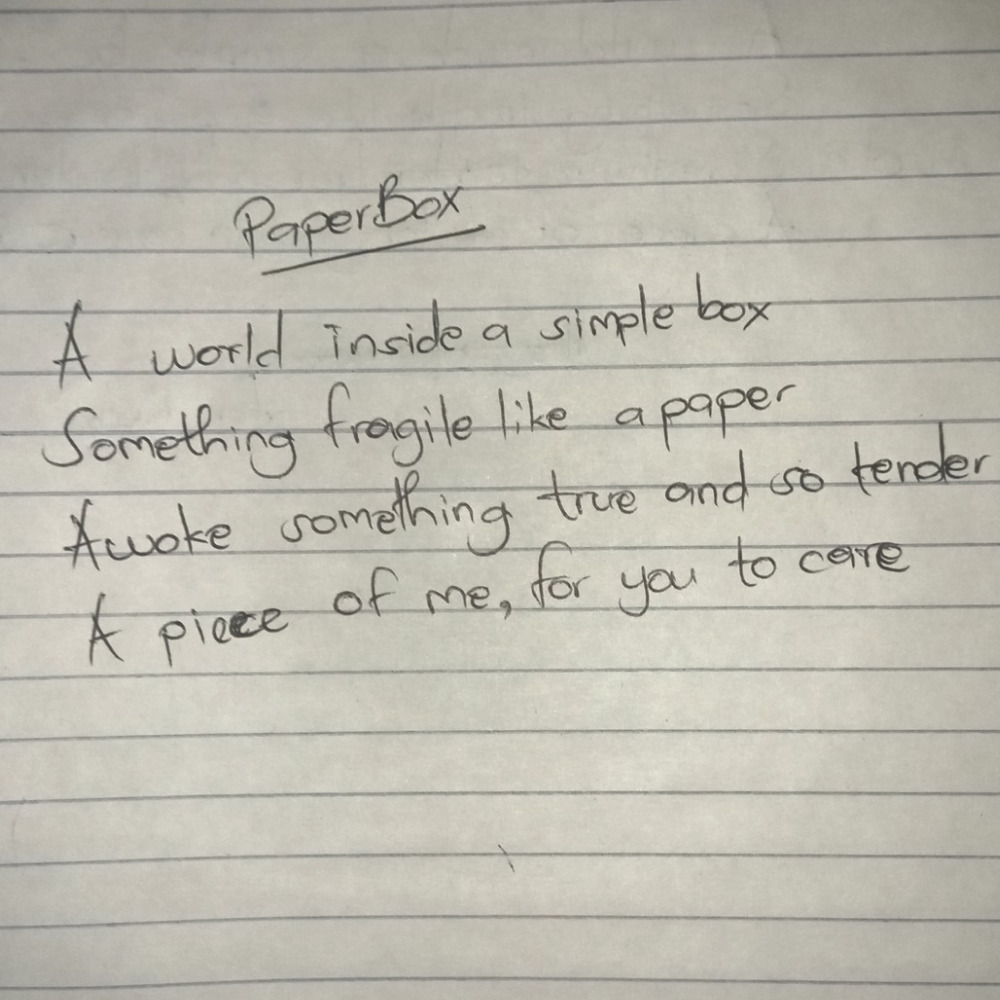 PaperBox
A world inside a simple box
Something fragile like a paper
Awoke something true and so tender
A piece of me, for you to care